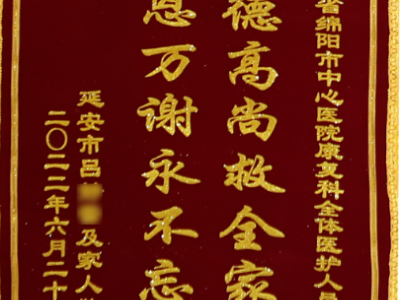 省绵阳市中心医院康复科全体医护人员
德高尚救全家
恩万谢永不忘
延安市吕 及家人
二〇二二年六月二十